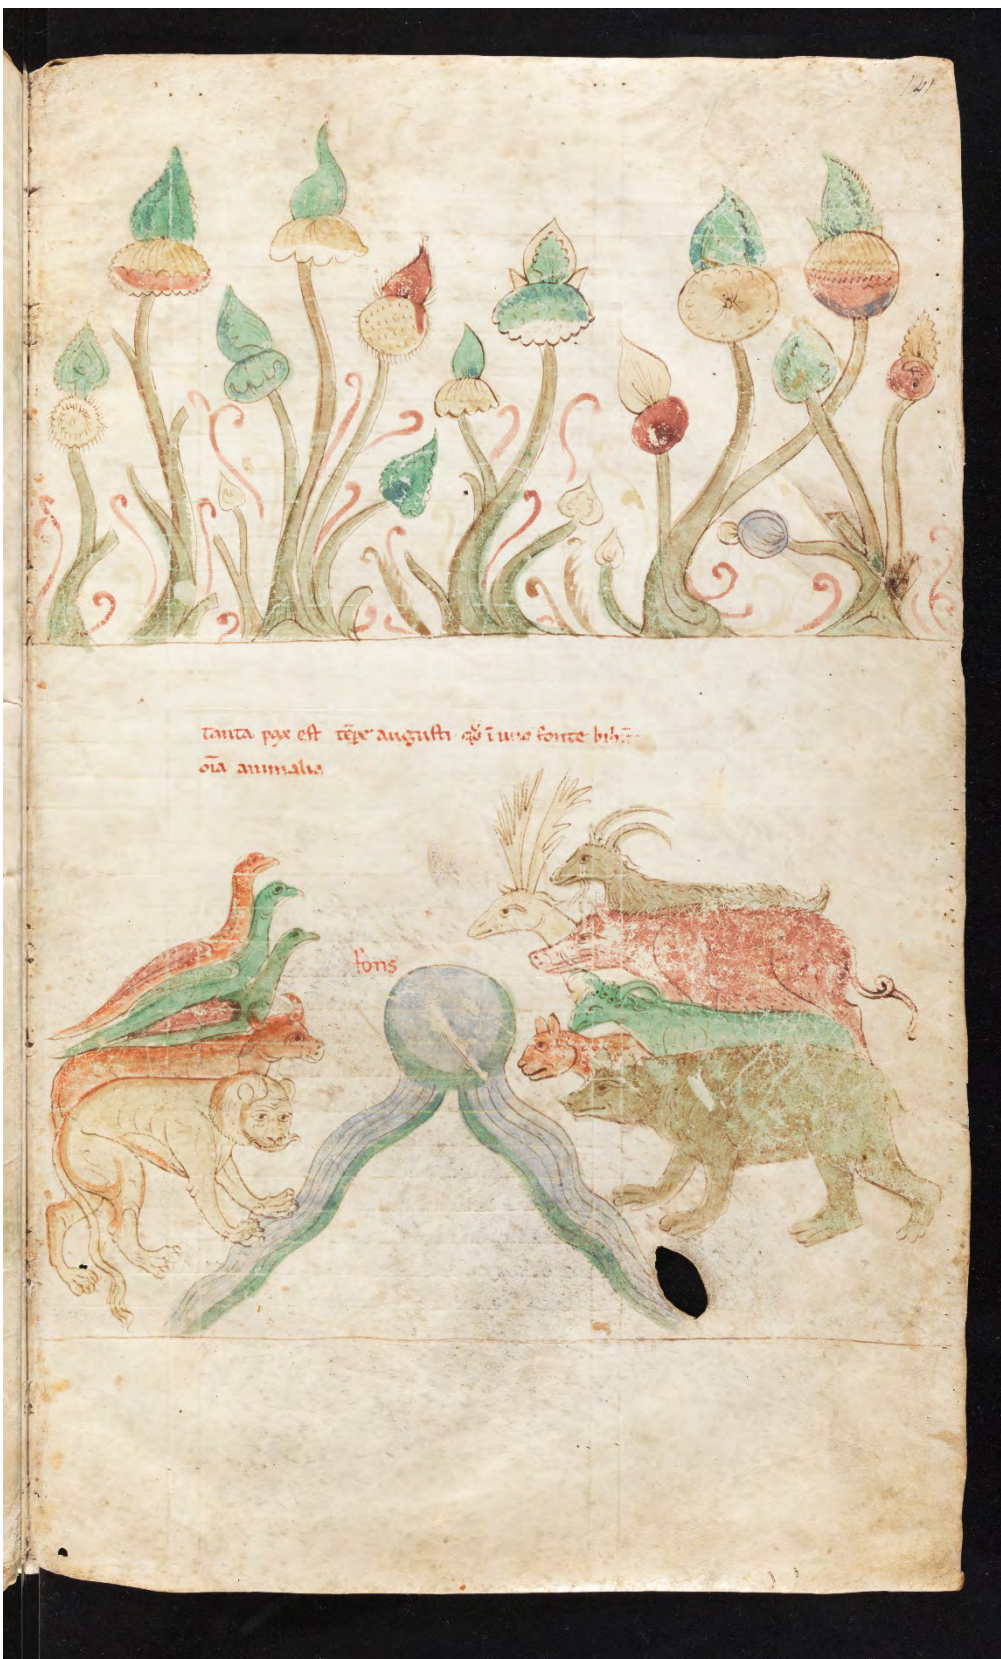 141
Tanta pax est tēpe augusti qͦ ī uno fonte bibūt
oīa animalia
fons